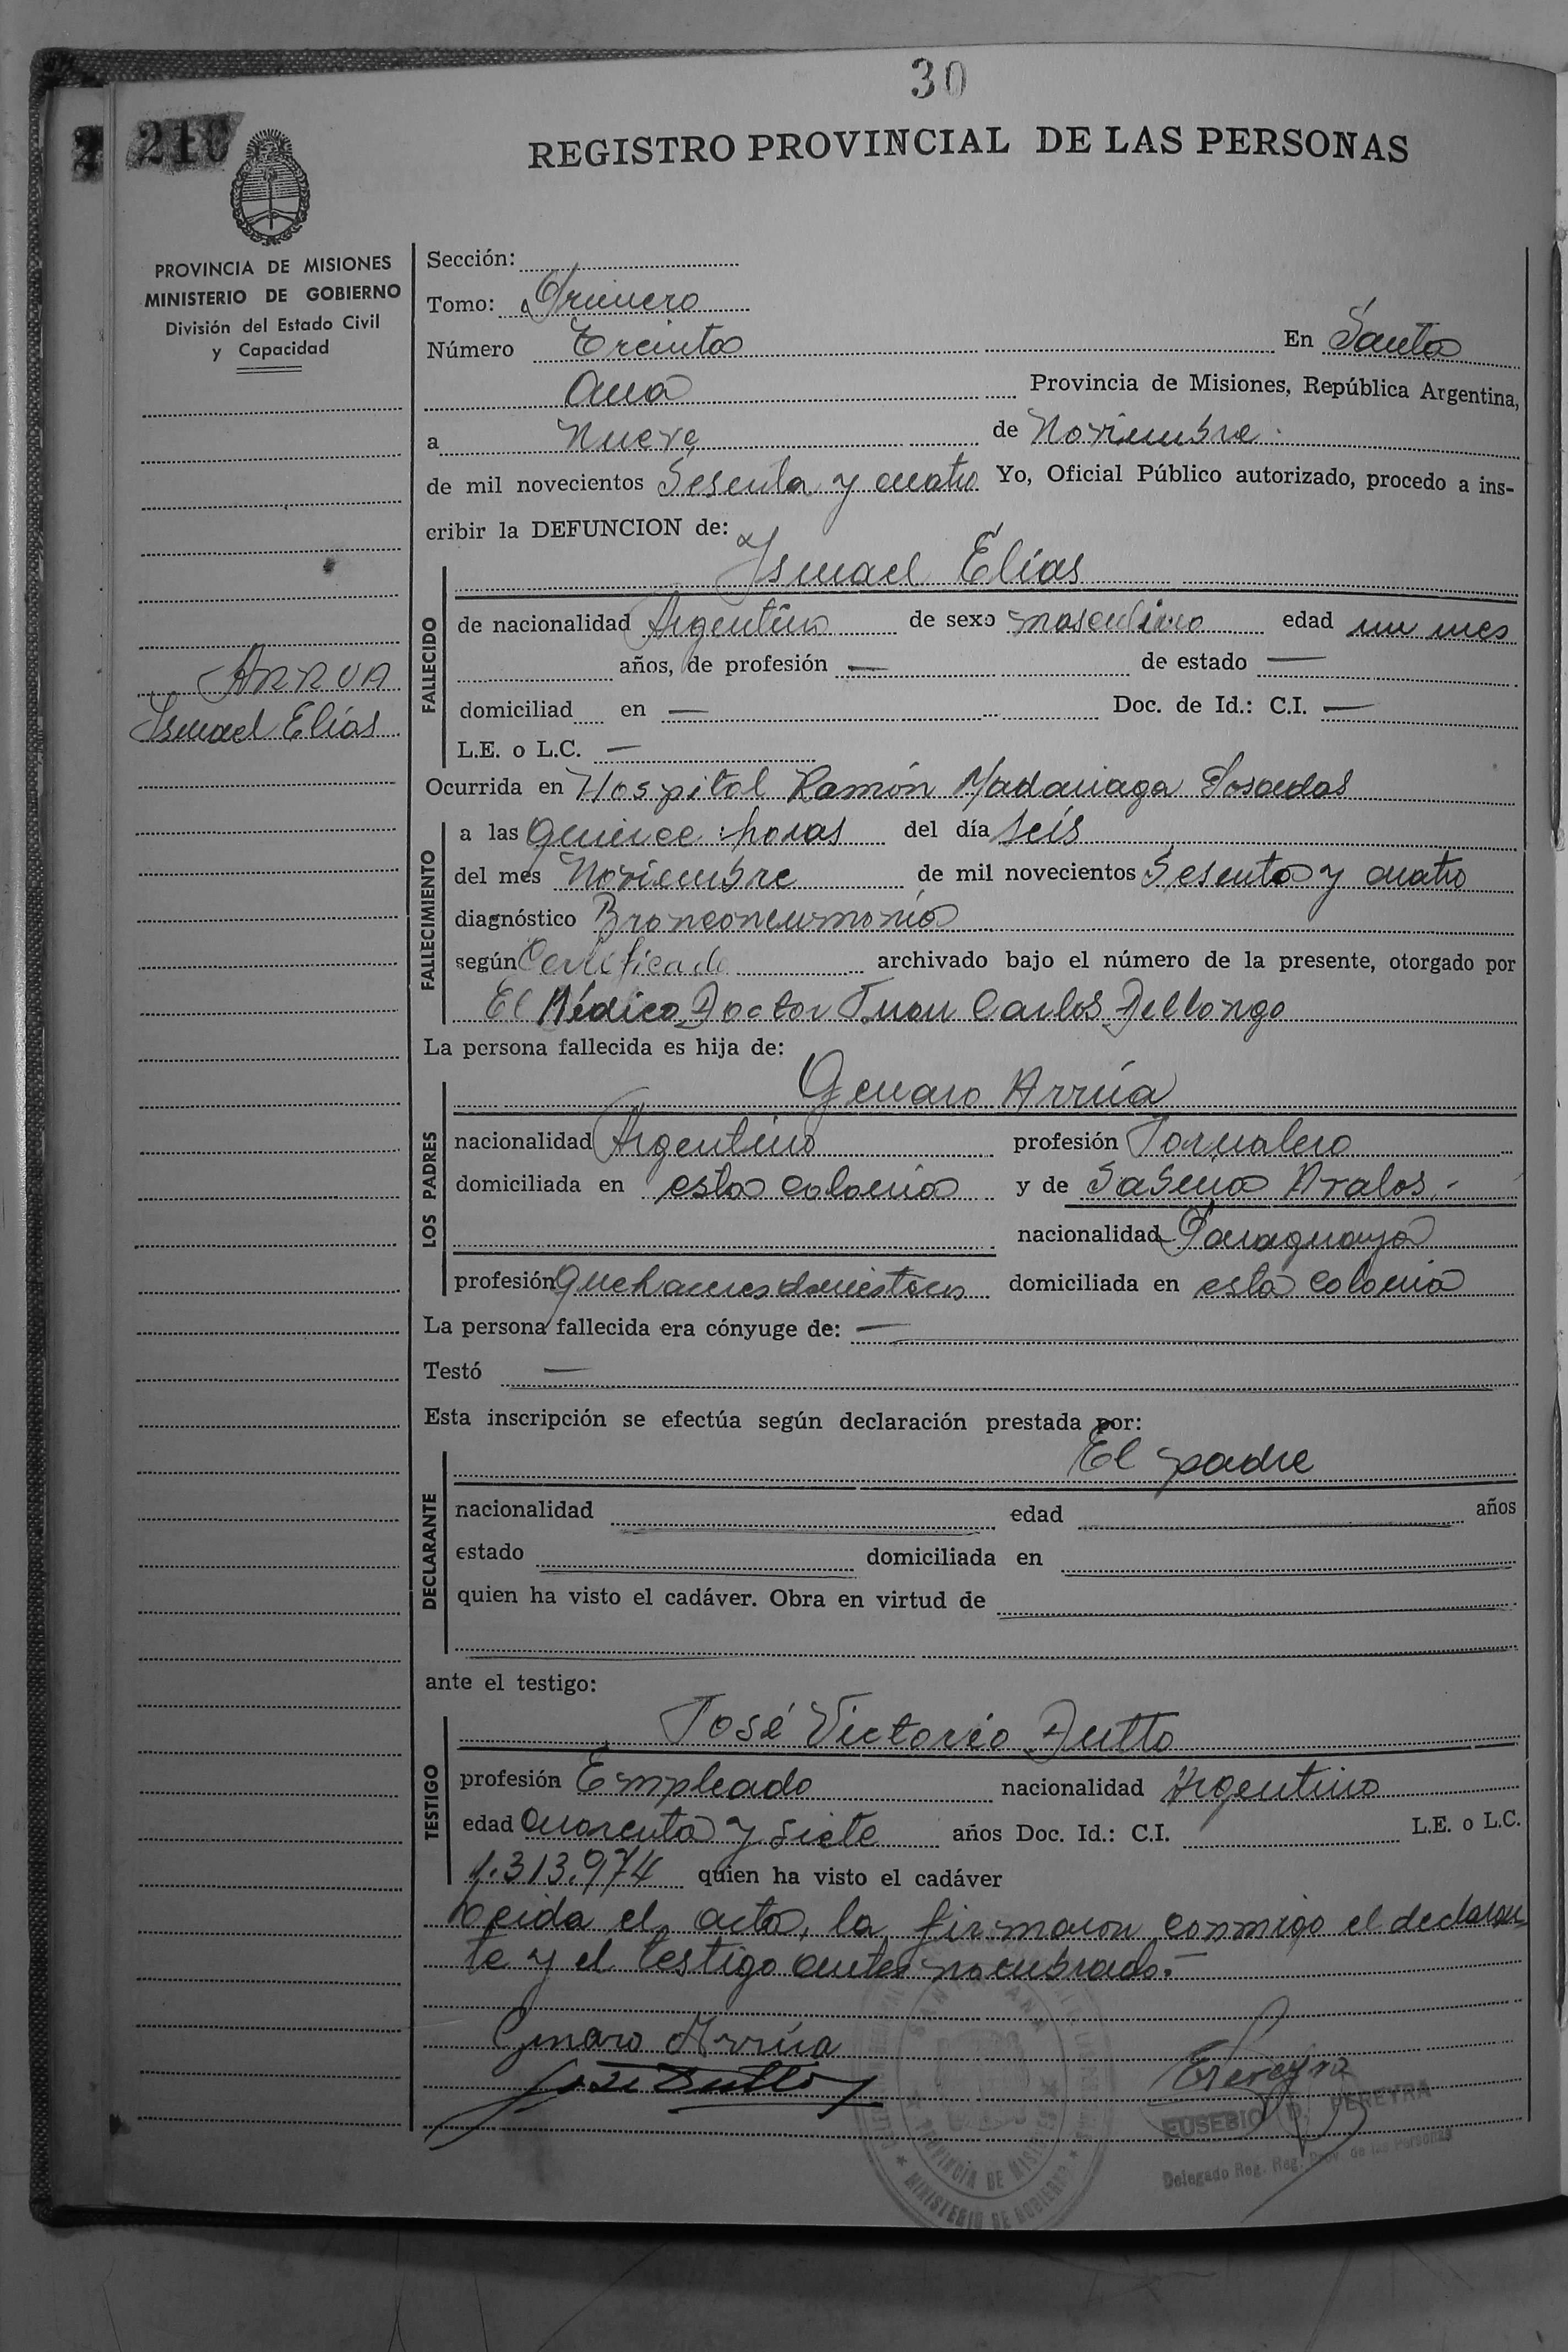 30
210
REGISTRO PROVINCIAL DE LAS PERSONAS
PROVINCIA DE MISIONES
MINISTERIO DE GOBIERNO
División del Estado Civil
y Capacidad
ARRUA
Ismael Elías
Sección:
Tomo: Primero
Número Treinta En Santa
Ana Provincia de Misiones, República Argentina,
a Nueve de Noviembre
de mil novecientos Sesenta y cuatro Yo, Oficial Público autorizado, procedo a ins-
cribir la DEFUNCION de:
Ismael Elías
FALLECIDO
de nacionalidad Argentino de sexo masculino edad un mes
años, de profesión — de estado —
domiciliad en — Doc. de Id.: C.I. —
L.E. o L.C. —
Ocurrida en Hospital Ramón Madariaga Posadas
FALLECIMIENTO
a las quince horas del día seis
del mes Noviembre de mil novecientos Sesenta y cuatro
diagnóstico Bronconeumonía
según Certificado archivado bajo el número de la presente, otorgado por
El Médico Doctor Juan Carlos Dellongo
La persona fallecida es hija de:
Genaro Arrúa
LOS PADRES
nacionalidad Argentino profesión Jornalero
domiciliada en esta colonia y de Sabina Avalos.-
nacionalidad Paraguaya
profesión quehaceres domesticos domiciliada en esta colonia
La persona fallecida era cónyuge de: —
Testó —
Esta inscripción se efectúa según declaración prestada por:
El padre
DECLARANTE
nacionalidad edad años
estado domiciliada en
quien ha visto el cadáver. Obra en virtud de
ante el testigo:
José Victorio Dutto
TESTIGO
profesión Empleado nacionalidad Argentino
edad cuarenta y siete años Doc. Id.: C.I. L.E. o L.C.
1.313.974 quien ha visto el cadáver
Leida el acta, la firmaron conmigo el declaran-
te y el testigo antes nombrado.-
Genaro Arrúa
José Dutto
EPereyra
EUSEBIO D. PEREYRA
Delegado Reg. Reg. Prov. de las Personas
SANTA ANA
PROVINCIA DE MISIONES
MINISTERIO DE GOBIERNO